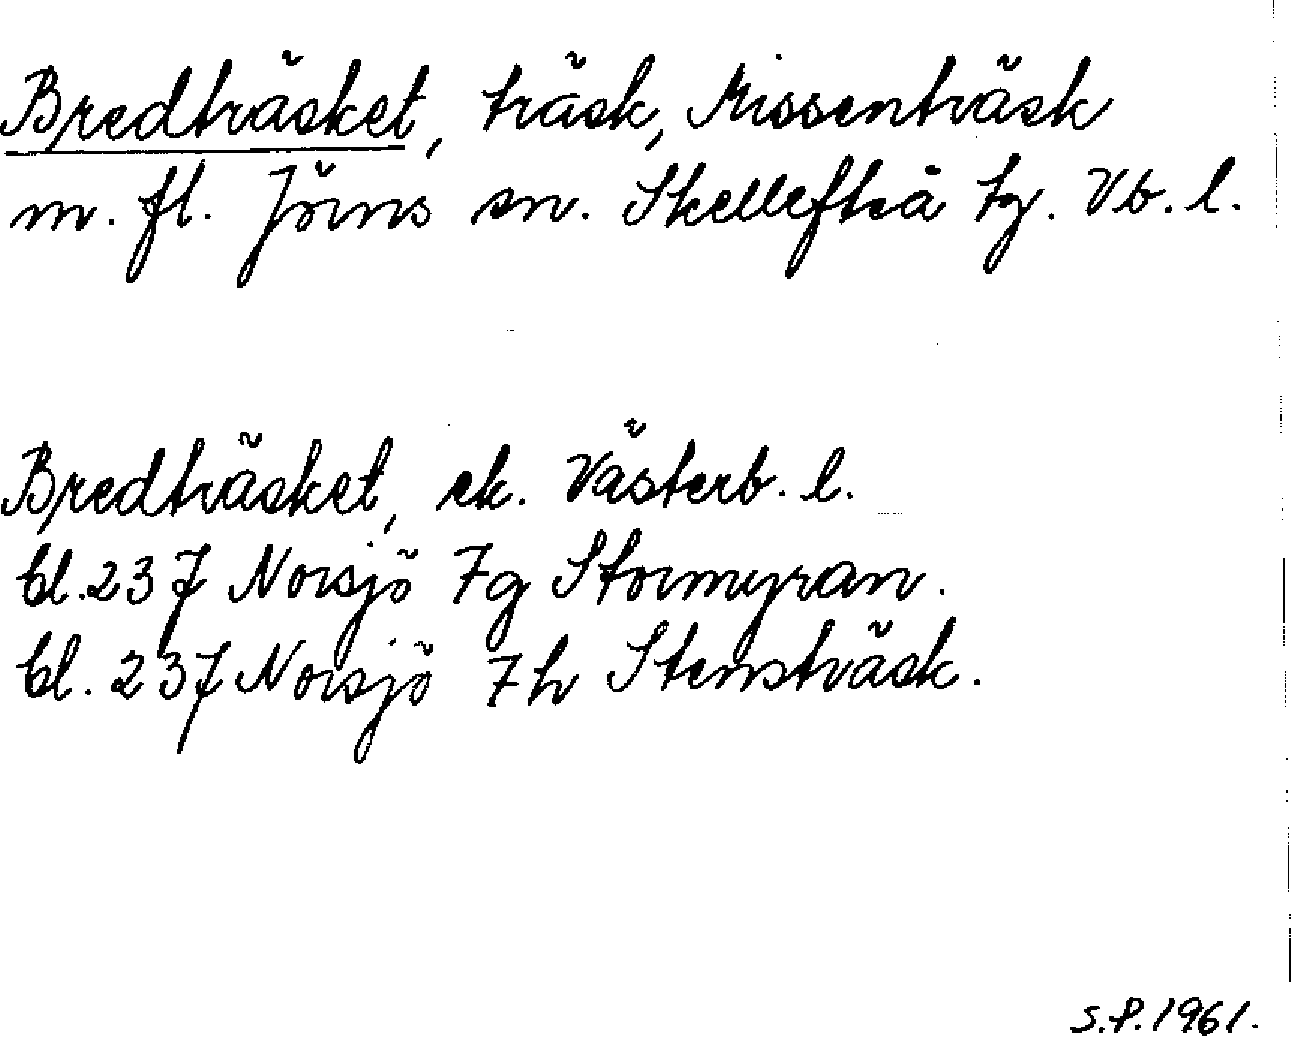 Bredträsket, träsk, Missenträsk
m. fl. Jörns sn. Skellefteå tg. Vb. l.
Bredträsket, ek. Västerb. l.
bl. 23 J Norsjö 7g Stormyran.
bl. 23 J Norsjö 7h Stensträsk.
S.P. 1961.